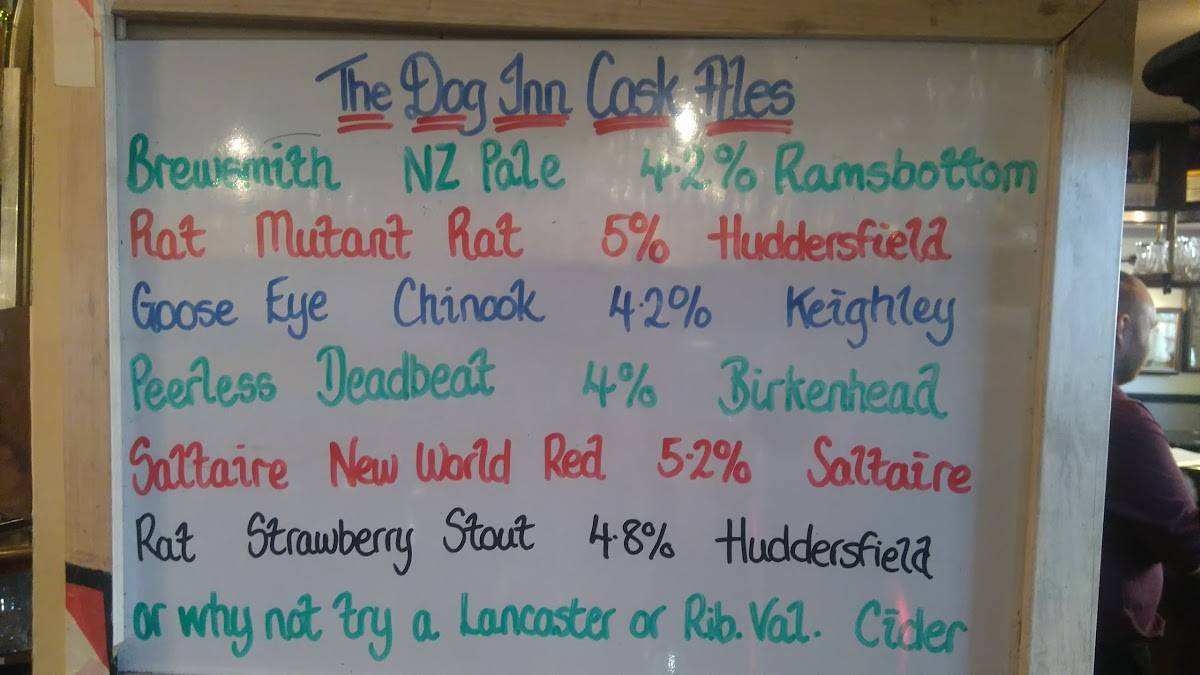 The Dog Inn Cask Ales
Brewsmith NZ Pale 4.2% Ramsbottom
Rat Mutant Rat 5% Huddersfield
Goose Eye Chinook 4.2% Keighley
Peerless Deadbeat 4% Birkenhead
Saltaire New World Red 5.2% Saltaire
Rat Strawberry Stout 4.8% Huddersfield
or why not try a Lancaster or Rib. Val. Cider